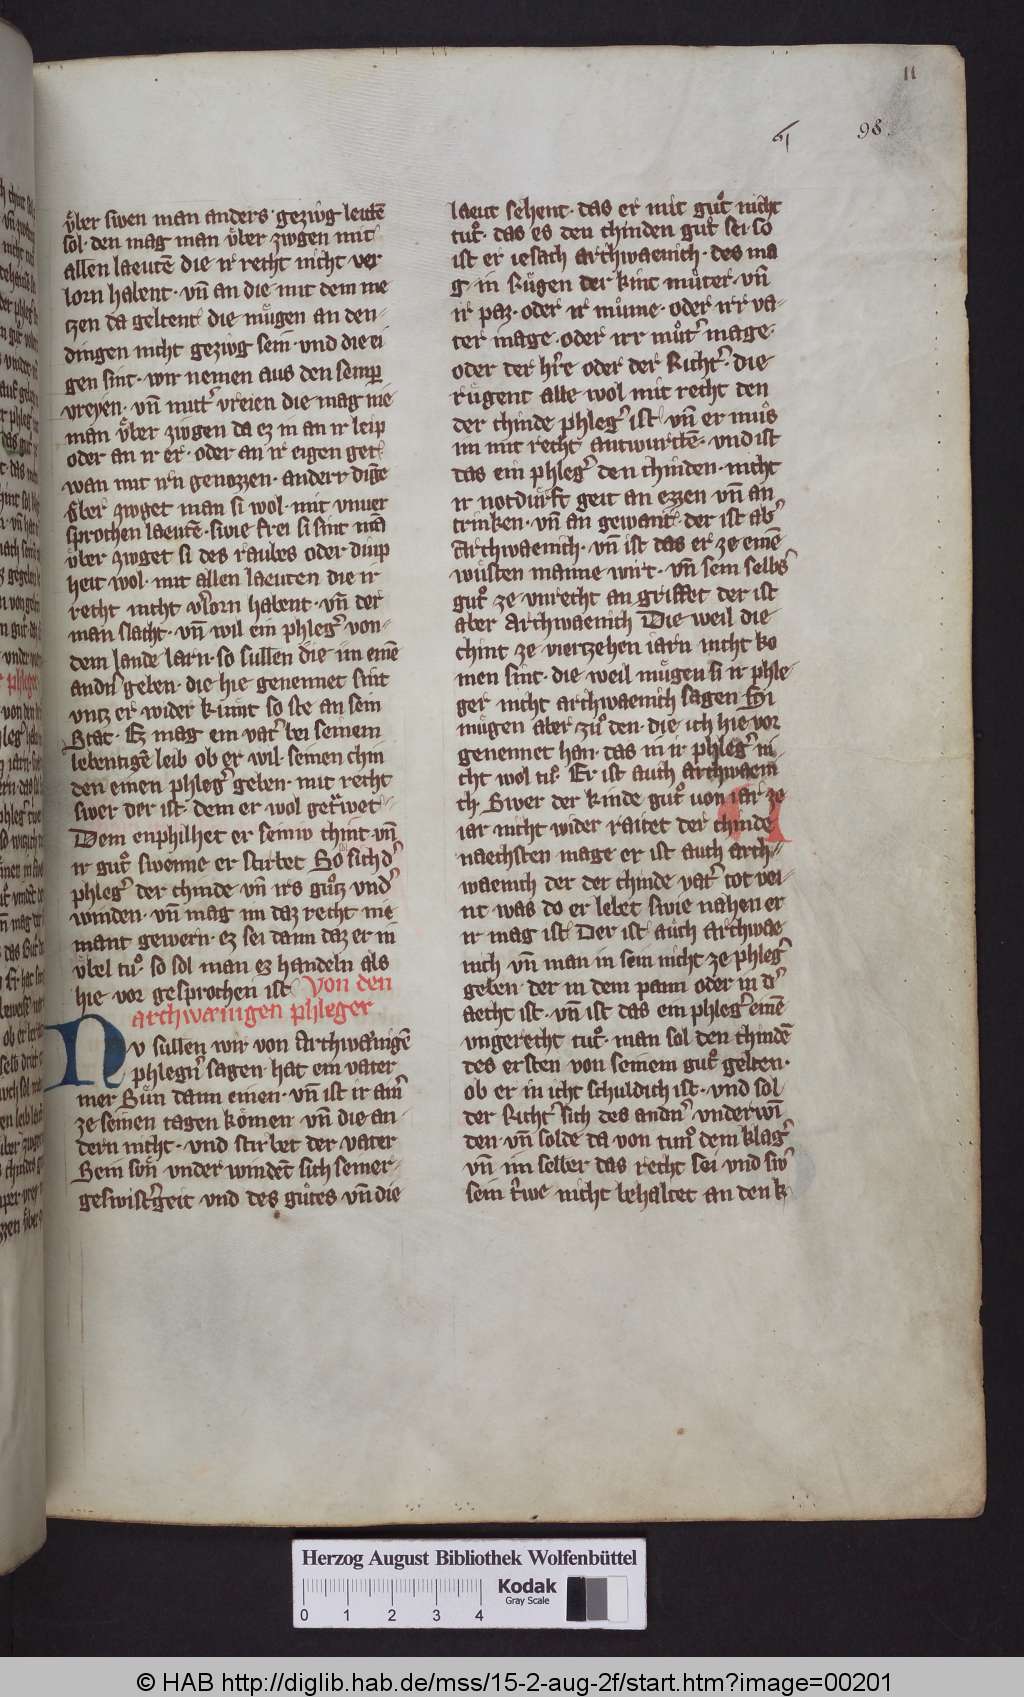 11
98
vͤber swen man anders gezivg leutē
sol· den mag man vͤber zivgen mit
allen laeutē die ir recht nicht ver
lorn habent· vn̄ an die mit dem me
zzen da geltent die muͤgen an den-
dingen nicht gezivg sein· vnd die ei
gen sint· wir nemen aus den semꝑ
vreyen· vn̄ mut͛ vreien die mag nie
man vͤber zivgen da ez in an ir leip
oder an ir er· oder an ir eigen get
wan mit irn genozzen· anderr dīge
vͤber zivget man si wol· mit vnuer
sprochen laeutē· swie frei si sint mā
vͤber zivget si des raubes oder diup
heit wol· mit allen laeuten die ir
recht nicht v͛lorn habent· vn̄ der
man slacht· vn̄ wil ein phleg͛ von-
dem lande varn· so sullen die im einē
and͛n geben· die hie genennet sint
vntz er wider kumt so ste an sein
Stat· Ez mag ein vat͛ bei seinem
lebentigē leib ob er wil· seinen chin
den einen phleg͛ geben· mit recht
swer der ist· dem er wol getrͮwet-
Dem enphilhet er seiniv chint vn̄
ir guͦt swenne er stirbet So sich d͛
phleg͛ der chinde vn̄ irs guͦtz vnd͛
winden· vn̄ mag im daz recht nie
mant gewern· ez sei dann daz er in
vͤbel tuͦ· so sol man ez handeln als
hie vor gesprochen ist Von den
archwænigen phleger
Nv sullen wir von Archwænigē
phlegn͛ sagen· hat ein vater
mer Suͤn dann einen· vn̄ ist ir ain͛
ze seinen tagen koͤmen vn̄ die an-
dern nicht· vnd stirbet der vater
Sein soͤn vnder windet sich seiner-
geswist͛geit vnd des guͦtes vn̄ die
laeut sehent· das er mit guͦt nicht
tuͦt· das es den chinden guͦt sei so
ist er iesach archwaenich· des ma
g in Ruͤgen der kint muͦter· vn̄
ir paz· oder ir muͦme· oder irr va-
ter mage· oder irr muͦt͛ mage·
oder der h͛re oder der Richt͛· die
ruͤgent alle wol mit recht den
der chinde phleg͛ ist vn̄ er muͦs
im mit recht antwurtē· vnd ist
das ein phleg͛ den chinden· nicht
ir notduͤrft geit an ezzen vn̄ an
trinken· vn̄ an gewant· der ist ab͛
Archwaenich· vn̄ ist das er ze einē
wuͤsten manne wirt· vn̄ sein selbs
guͦt ze vnrecht an griffet der ist
aber Archwaenich Die weil die
chint ze viertzehen iarn nicht ko
men sint· die weil muͤgen si ir phle-
ger nicht archwaenich sagen Si
muͤgen aber zuͦ den· die ich hie vor
genennet han· das in ir phleg͛ ni
cht wol tuͦ Er ist auch archwaeni
ch Swer der kinde guͦt von iar ze
iar nicht wider raitet der chinde
naechsten mage er ist auch arch-
waenich der der chinde vat͛ tot vei-
nt was do er lebet swie nahen er
ir mag ist Der ist auch Archwae
nich vn̄ man in sein nicht ze phleg͛
geben· der in dem pann oder in d͛
aecht ist· vn̄ ist das ein phleg͛ einē
vngerecht tuͦt· man sol den chindē
des ersten von seinem guͦt gelten·
ob er in icht schuldich ist· vnd sol
der Richt͛ sich des andn͛ vnderwī
den· vn̄ solde da von tuͦn dem klag͛
vn̄ im selber das recht sei vnd sw͛
sein trͮwe nicht behaltet an den k
Herzog August Bibliothek Wolfenbüttel
Kodak
Gray Scale
0 1 2 3 4
© HAB http://diglib.hab.de/mss/15-2-aug-2f/start.htm?image=00201